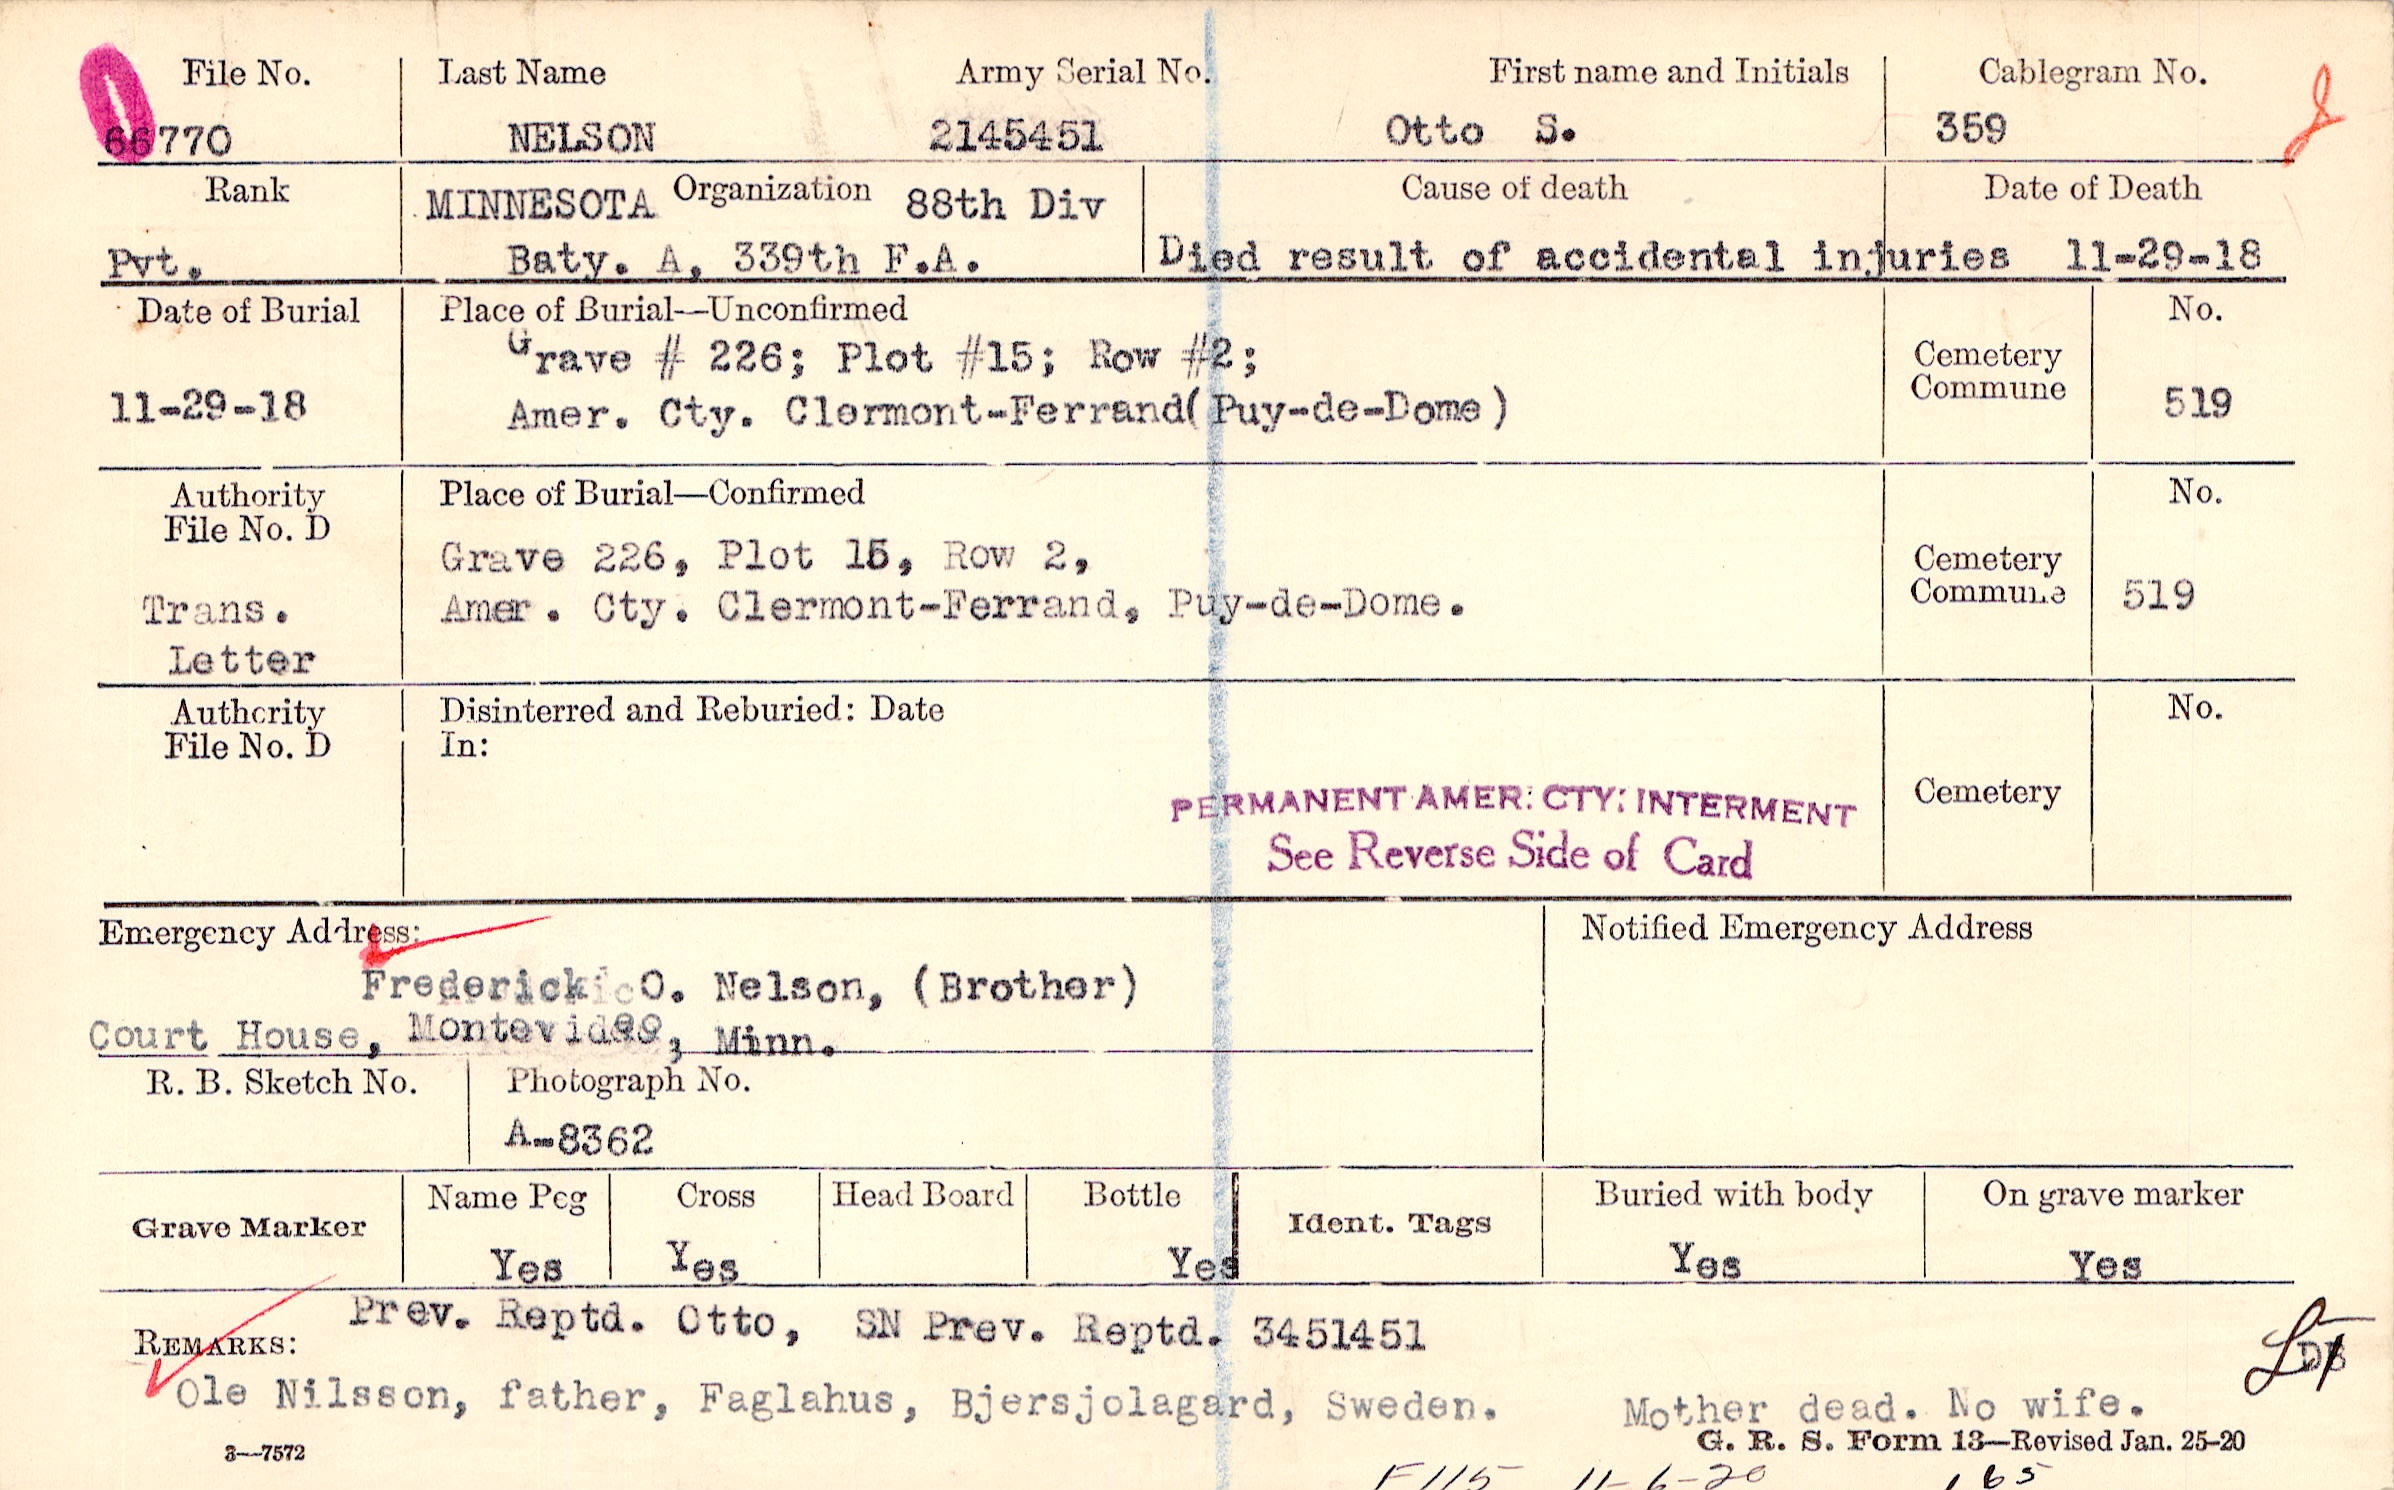 File No. Last Name Army Serial No. First name and Initials Cablegram No.
66770 NELSON 2145451 Otto S. 359
Rank MINNESOTA Organization 88th Div Cause of death Date of Death
Pvt. Baty. A, 339th F.A. Died result of accidental injuries 11-29-18
Date of Burial Place of Burial—Unconfirmed No.
Grave # 226; Plot #15; Row #2; Cemetery
Commune
11-29-18 Amer. Cty. Clermont-Ferrand(Puy-de-Dome) 519
Authority Place of Burial—Confirmed No.
File No. D
Grave 226, Plot 15, Row 2, Cemetery
Trans. Amer. Cty. Clermont-Ferrand, Puy-de-Dome. Commune 519
Letter
Authority Disinterred and Reburied: Date No.
File No. D In:
PERMANENT AMER. CTY. INTERMENT Cemetery
See Reverse Side of Card
Emergency Address: Notified Emergency Address
Frederick O. Nelson, (Brother)
Court House, Minn.
R. B. Sketch No. Photograph No.
A-8362
Grave Marker Name Peg Cross Head Board Bottle Ident. Tags Buried with body On grave marker
Yes Yes Yes Yes Yes
Prev. Reptd. Otto, SN Prev. Reptd. 3451451
REMARKS:
DB
Ole Nilsson, father, Faglahus, Bjersjolagard, Sweden. Mother dead. No wife.
3—7572 G. R. S. Form 13—Revised Jan. 25-20
F115 11-6-20 165